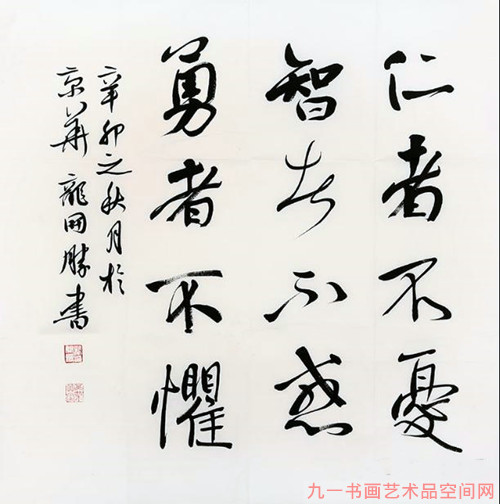 仁者不憂
智者不惑
勇者不懼
辛卯之秋月於
京華龍田勝書
九一书画艺术品空间网